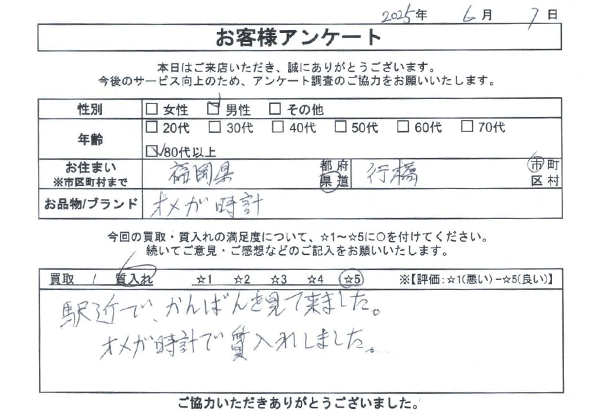 2025年 6月 7日
お客様アンケート
本日はご来店いただき、誠にありがとうございます。
今後のサービス向上のため、アンケート調査のご協力をお願いいたします。
性別 □女性 ☑男性 □その他
年齢 □20代 □30代 □40代 □50代 □60代 □70代
☑80代以上
お住まい ※市区町村まで 福岡県 都府県道 行橋 市町区村
お品物/ブランド オメガ時計
今回の買取・質入れの満足度について、☆1～☆5に○を付けてください。
続いてご意見・ご感想などのご記入をお願いいたします。
買取 / 質入れ ☆1 ☆2 ☆3 ☆4 ☆5 ※【評価:☆1(悪い)−☆5(良い)】
駅近で、かんばんを見て来ました。
オメガ時計で質入れしました。
ご協力いただきありがとうございました。